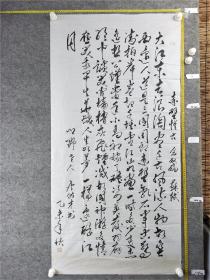 赤壁怀古 念奴娇 苏轼
大江东去浪淘尽千古风流人物故垒
西边人道是三国周郎赤壁乱石穿空惊
涛拍岸卷起千堆雪江山如画一时多少豪
杰遥想公瑾当年小乔初嫁了雄姿英发羽
扇纶巾谈笑间樯橹灰飞烟灭故国神游多情
应笑我早生华发人生如梦一樽还酹江
月
乙未年秋